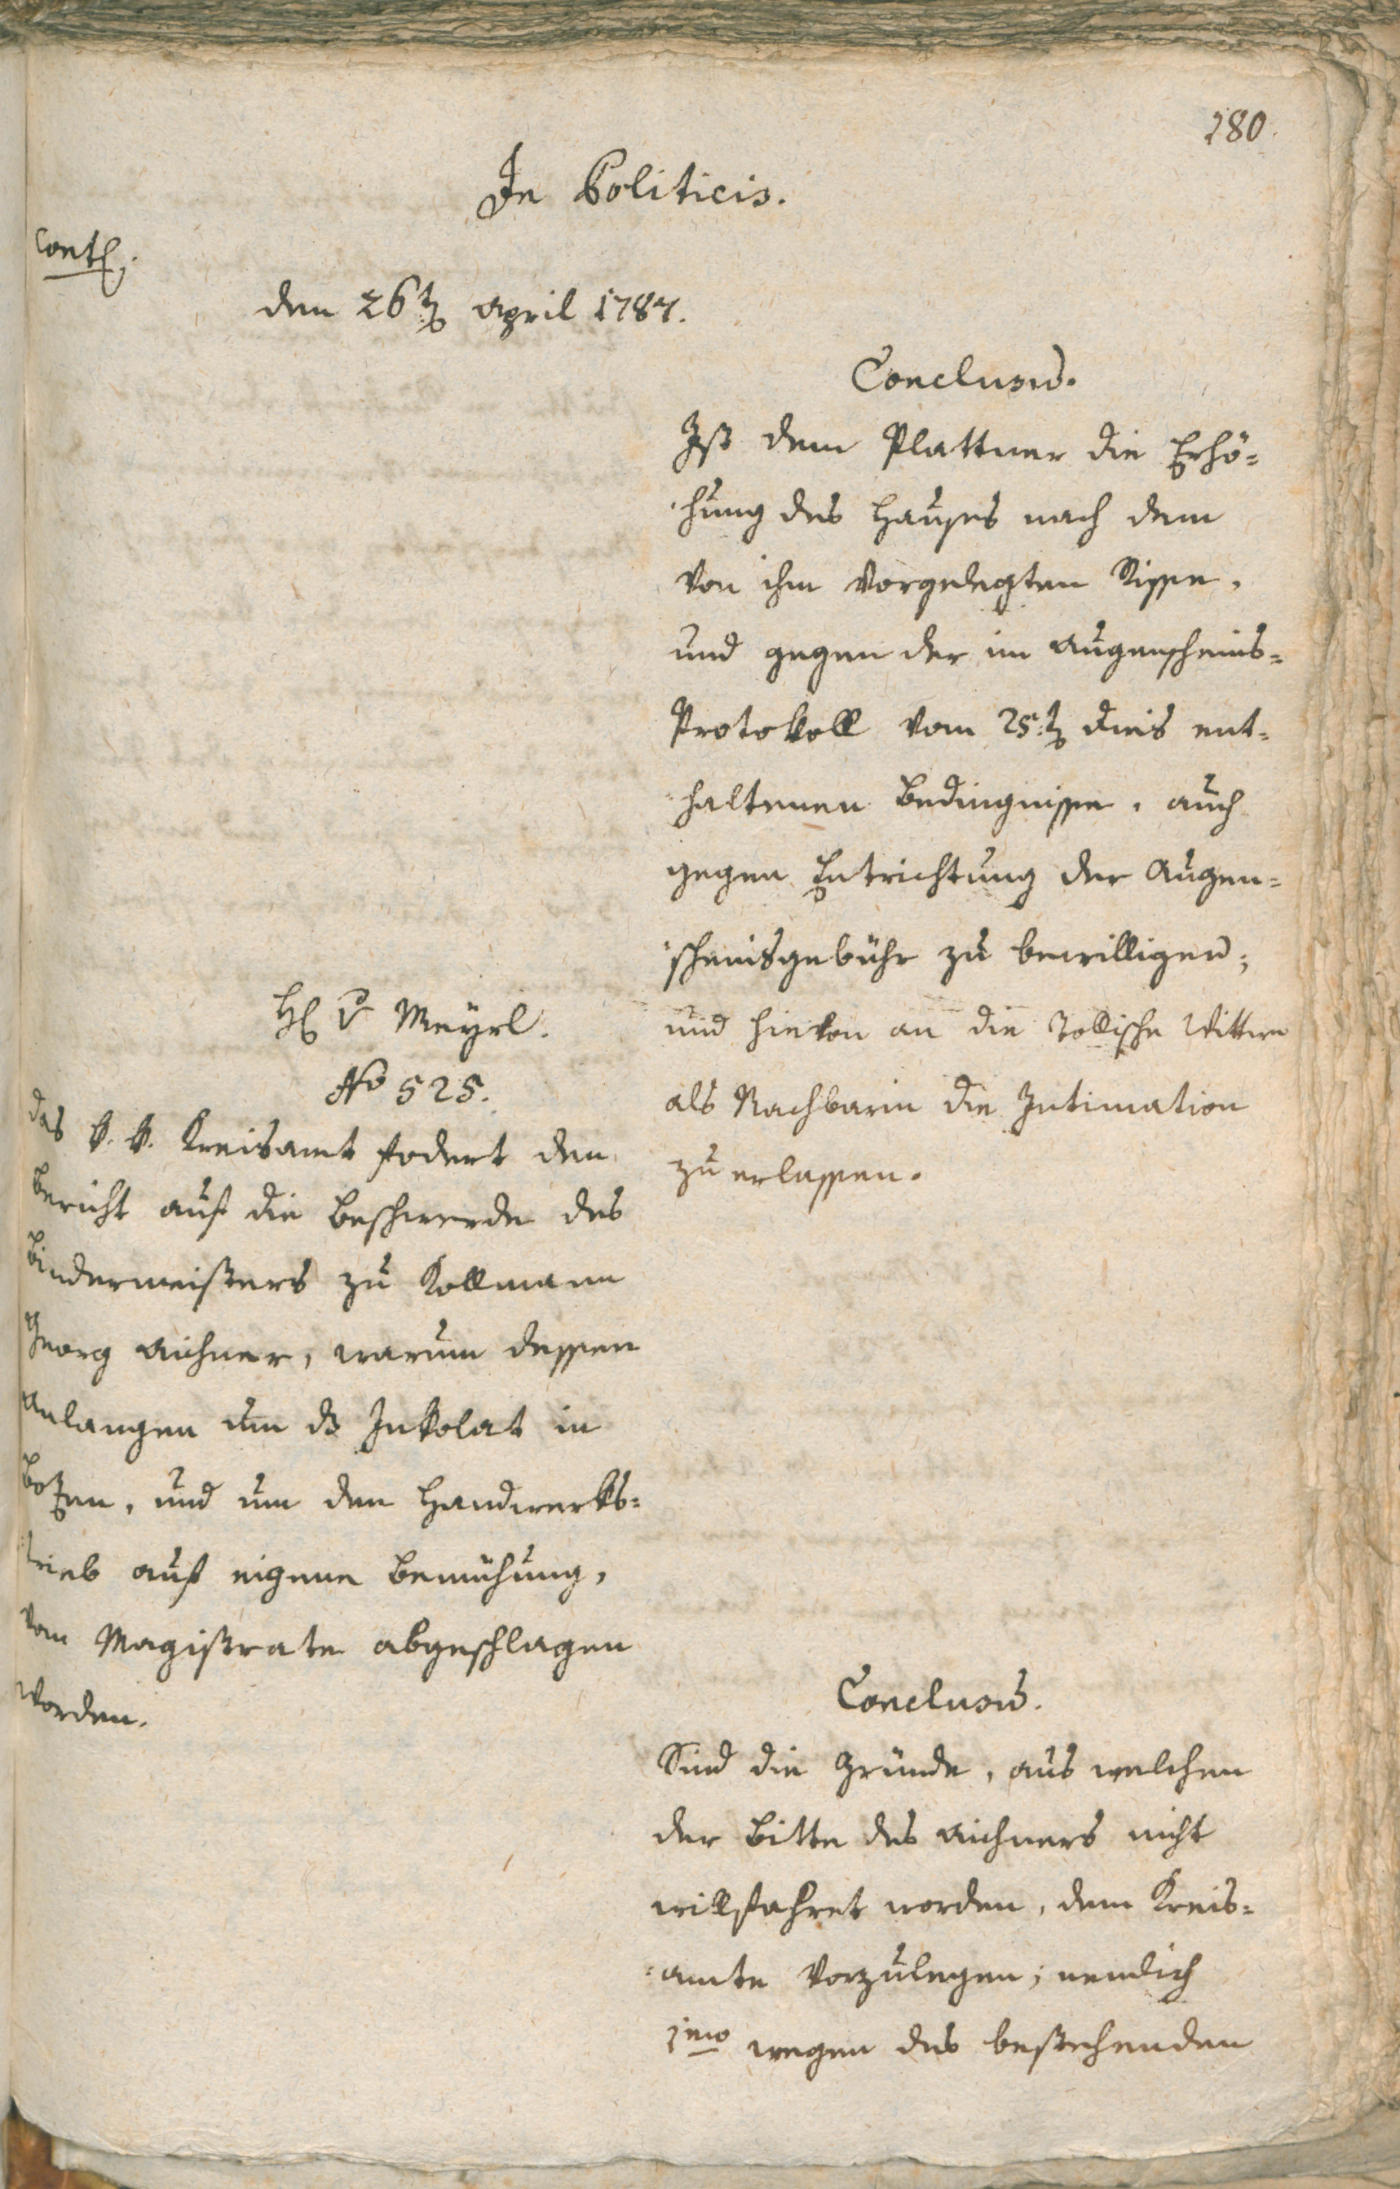 280.
In Politicis.
Cont.
den 26t April 1787.
Conclusū.
Ist dem Plattner die Erhö-
hung des Hauses nach dem
von ihm vorgelegten Risse,
und gegen der im Augenscheins-
Protokoll vom 25.t dies ent-
haltenen Bedingnisse, auch
gegen Entrichtung der Augen-
scheinsgebühr zu bewilligen;
und hievon an die Tollische Wittwe
als Nachbarin die Intimation
zu erlassen.
H v Meyrl.
No 525.
Das k. k. Kreisamt fodert den
Bericht auf die Beschwerde des
Bindermeisters zu Kollmann
Georg Aichner, warum dessen
Anlangen um ds Inkolat in
Botzen, und um den Handwerks-
trieb auf eigene Bemühung,
vom Magistrate abgeschlagen
worden.
Conclusū.
Sind die Gründe, aus welchen
der Bitte des Aichners nicht
willfahret worden, dem Kreis-
amte vorzulegen; nemlich
1mo wegen des bestehenden